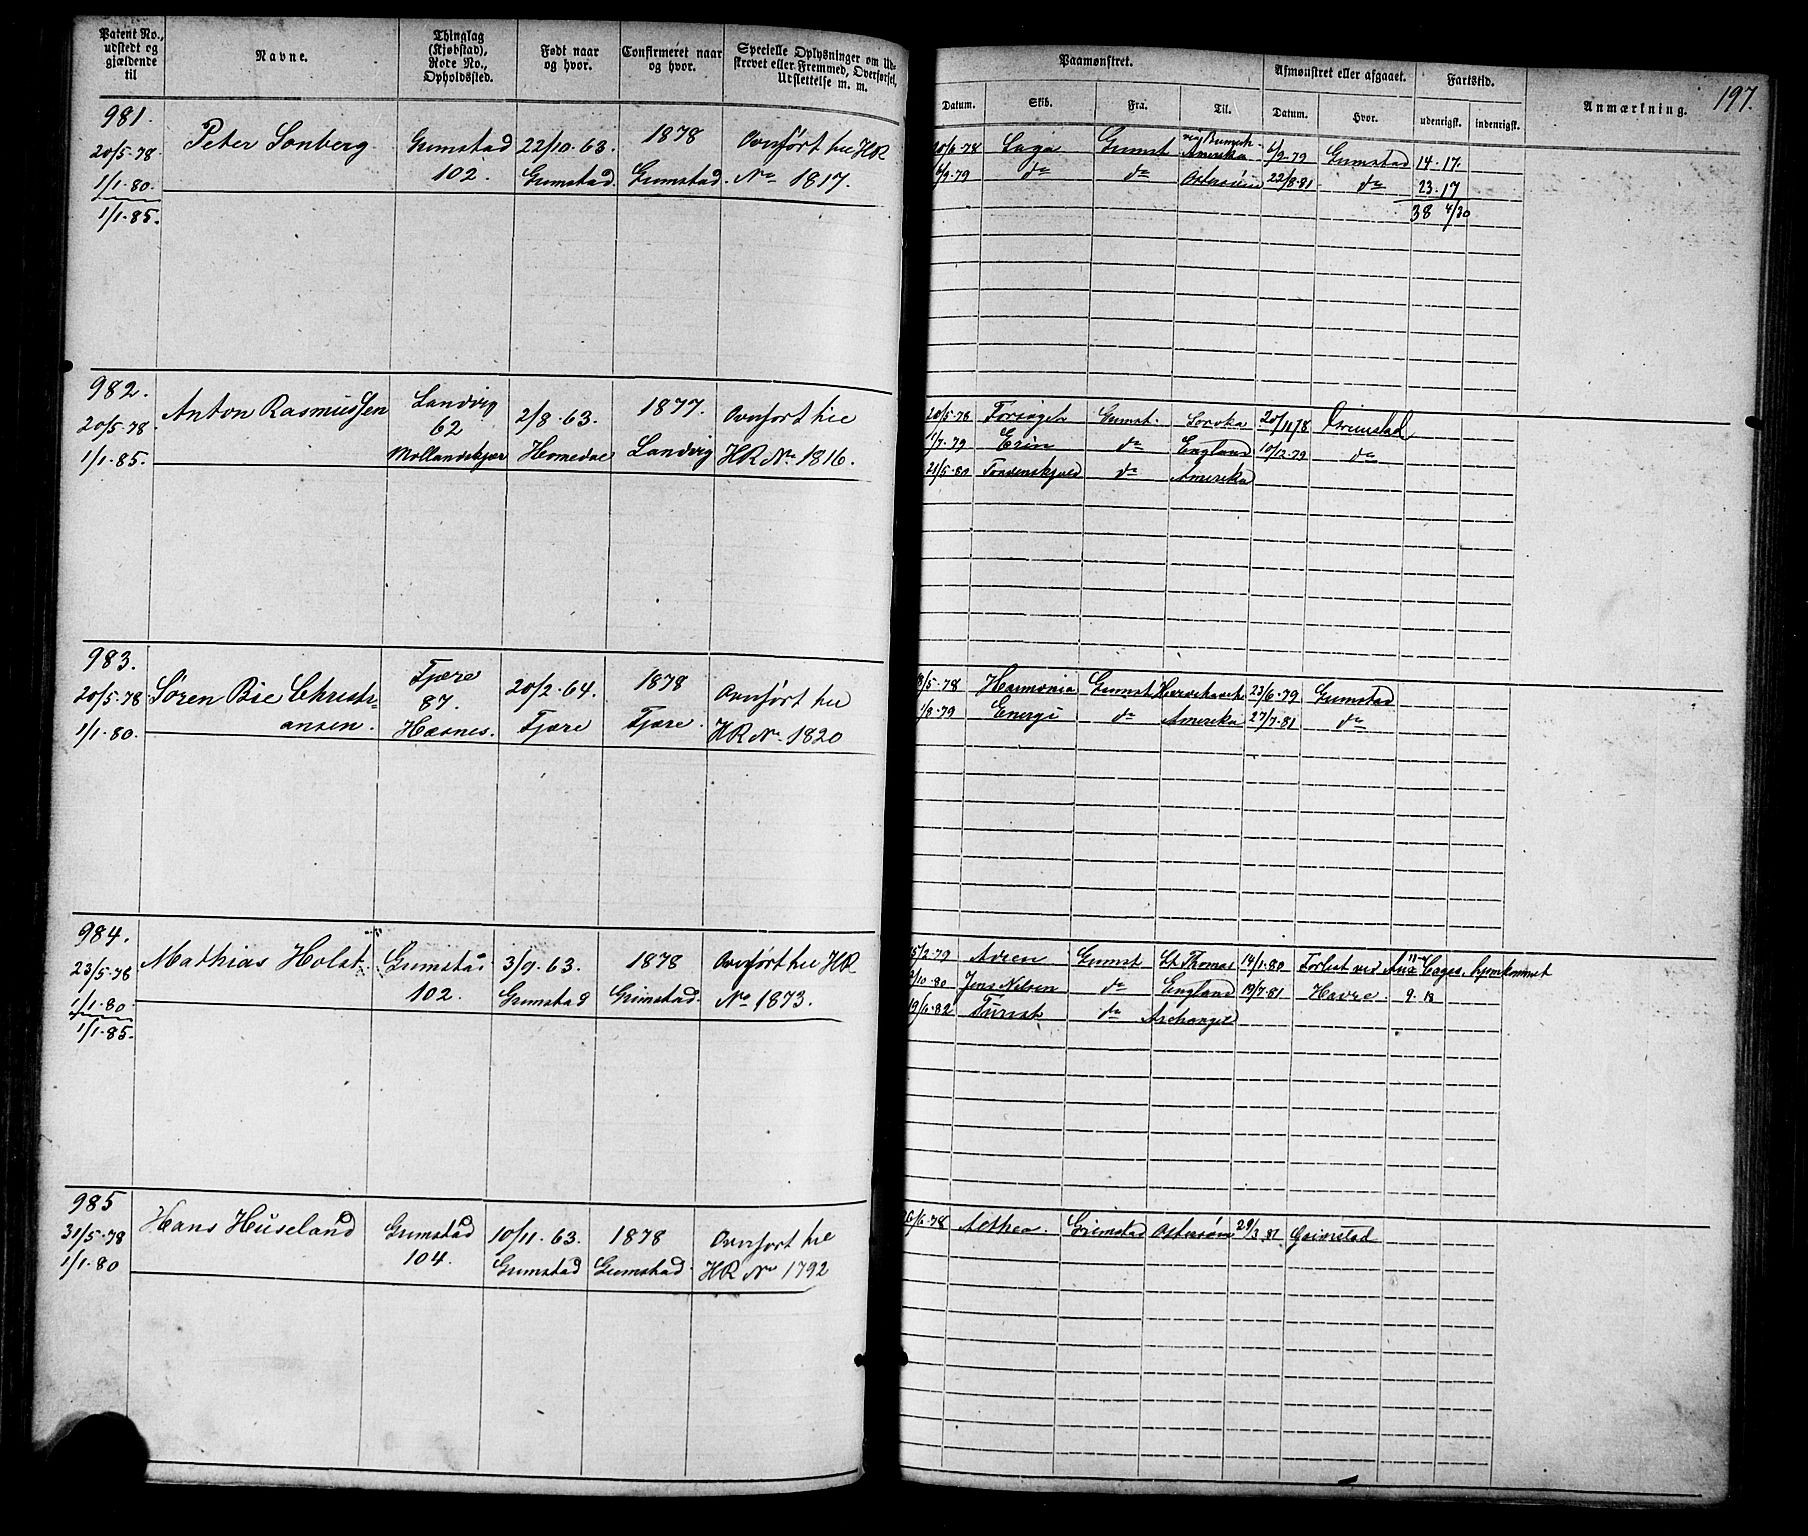 197.
Patent No., udstedt og gjældende til
Navne.
Thinglag (Kjøbstad), Rode No., Opholdssted.
Født naar og hvor.
Confirmeret naar og hvor.
Specielle Oplysninger om Udskrevet eller Fremmed, Overførsel, Udslettelse m. m.
Paamønstret.
Afmønstret eller afgaaet.
Fartstid.
Anmærkning.
Datum. Skib. Fra. Til. Datum. Hvor. udenrigsk. indenrigsk.
981.
20/5-78
1/1-80.
1/1-85.
Peter Sonberg
Grimstad
102.
22/10-63.
Grimstad.
1878
Grimstad.
Overført til HR
No 1817.
Saga Grimst Amerika 6/9-79 Grimstad 14-17.
6/9-79 do do Østersøen 22/8-81 do 23-17
38 4/30
982.
20/5-78
1/1-85.
Anton Rasmussen
Landvig
62
Mollandskjær
2/8-63.
Homedal
1877.
Landvig
Overført til
HR No 1816.
20/5-78 Forsøget Grimst. Soroka 20/11 78 Grimstad
1/7-79 Erin do England 10/12-79 do
21/5-80 Tordenskjold do Amerika
983.
20/5-78
1/1-80.
Søren Bie Christi-
ansen.
Fjære
87.
Hæsnes.
20/2-64.
Fjære
1878
Fjære.
Overført til
HR No 1820
8/5-78 Harmonia Grimst 23/6-79 Grimstad
1/8-79 Energi do Amerika 27/7-81 do
984.
23/5-78
1/1-80
1/1-85.
Mathias Holst.
Grimstad
102.
3/9-63.
Grimstad
1878
Grimstad.
Overført til HR
No 1873.
15/2-79 Grimst St Thomas 14/1-80 Forlist ved Aux Cayes, hjemkommet
2/10-80 Jens Nilsen do England 19/7-81 Havre 9-18
19/6-82 Turist do Archangel
985
31/5-78
1/1-80
Hans Huseland
Grimstad
104.
10/11-63.
Grimstad
1878
Grimstad.
Overført til
HR No 1792
6/6-78 Althea. Grimstad Østersøen 29/3 81 Grimstad